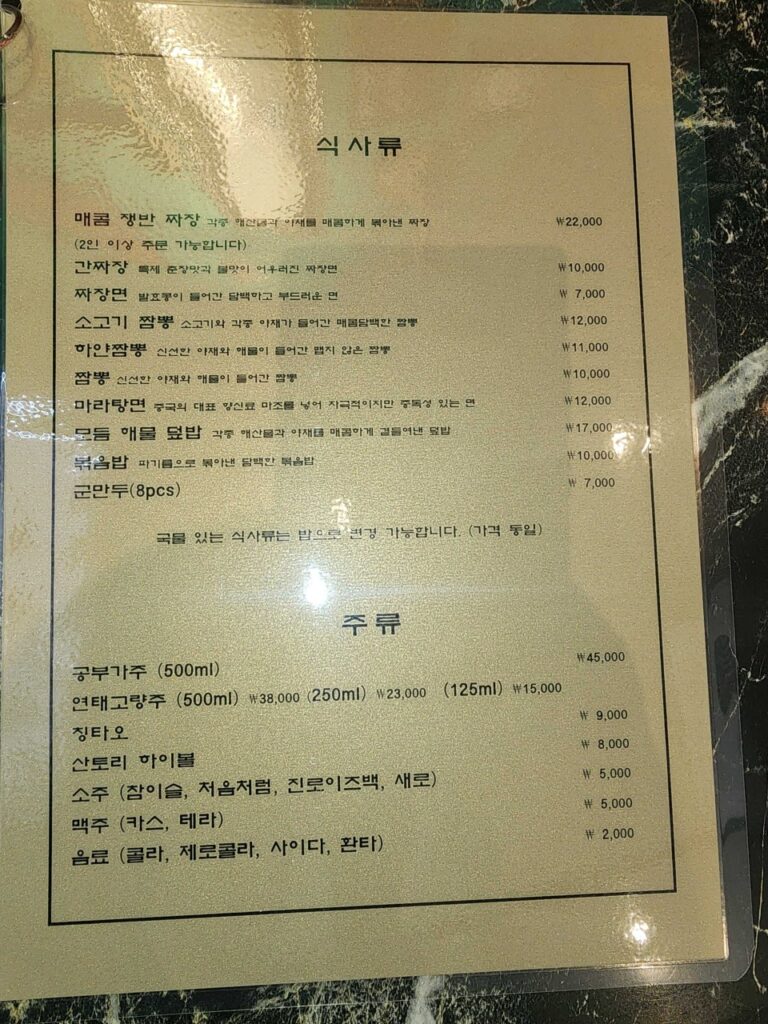 식사류
매콤 쟁반 짜장 각종 해산물과 야채를 매콤하게 볶아낸 짜장 ₩22,000
(2인 이상 주문 가능합니다)
간짜장 특제 춘장맛과 불맛이 어우러진 짜장면 ₩10,000
짜장면 발효콩이 들어간 담백하고 부드러운 면 ₩ 7,000
소고기 짬뽕 소고기와 각종 야채가 들어간 매콤담백한 짬뽕 ₩12,000
하얀짬뽕 신선한 야채와 해물이 들어간 맵지 않은 짬뽕 ₩11,000
짬뽕 신선한 야채와 해물이 들어간 짬뽕 ₩10,000
마라탕면 중국의 대표 향신료 마조를 넣어 자극적이지만 중독성 있는 면 ₩12,000
모듬 해물 덮밥 각종 해산물과 야채를 매콤하게 곁들여낸 덮밥 ₩17,000
볶음밥 파기름으로 볶아낸 담백한 볶음밥 ₩10,000
군만두(8pcs) ₩ 7,000
국물 있는 식사류는 밥으로 변경 가능합니다. (가격 동일)
주류
공부가주 (500ml) ₩45,000
연태고량주 (500ml) ₩38,000 (250ml) ₩23,000 (125ml) ₩15,000
칭타오 ₩ 9,000
산토리 하이볼 ₩ 8,000
소주 (참이슬, 처음처럼, 진로이즈백, 새로) ₩ 5,000
맥주 (카스, 테라) ₩ 5,000
음료 (콜라, 제로콜라, 사이다, 환타) ₩ 2,000